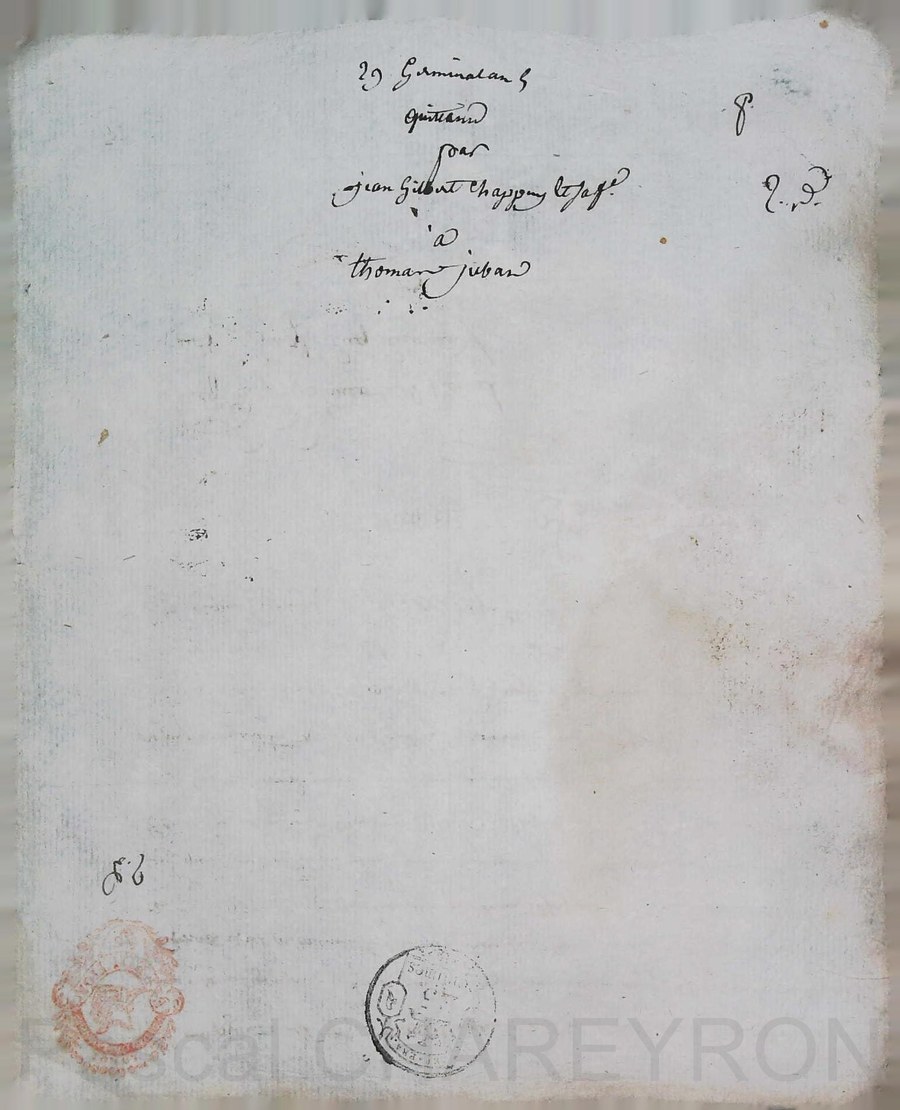 29 Germinal an 5
quittance
par
jean Gilbert Chappuy et sa fe
à
thomas juban
P.
R. d.
Pascal CHAREYRON